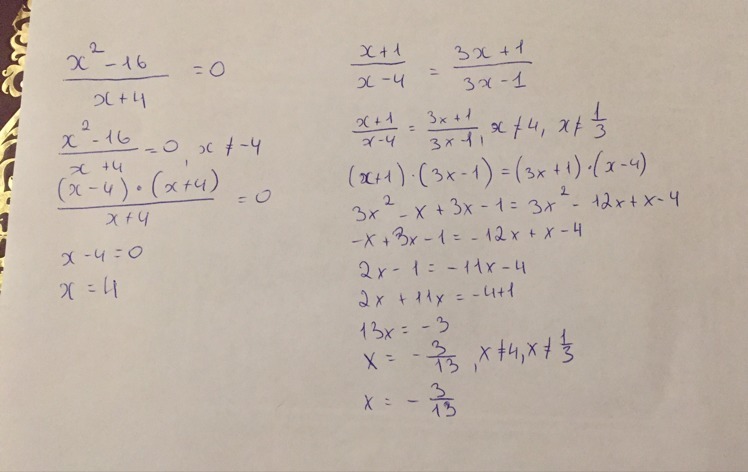 x² - 16 / x + 4 = 0
x² - 16 / x + 4 = 0, x ≠ -4
(x - 4) · (x + 4) / x + 4 = 0
x - 4 = 0
x = 4
x + 1 / x - 4 = 3x + 1 / 3x - 1
x + 1 / x - 4 = 3x + 1 / 3x - 1, x ≠ 4, x ≠ 1/3
(x + 1) · (3x - 1) = (3x + 1) · (x - 4)
3x² - x + 3x - 1 = 3x² - 12x + x - 4
-x + 3x - 1 = -12x + x - 4
2x - 1 = -11x - 4
2x + 11x = -4 + 1
13x = -3
x = - 3/13, x ≠ 4, x ≠ 1/3
x = - 3/13